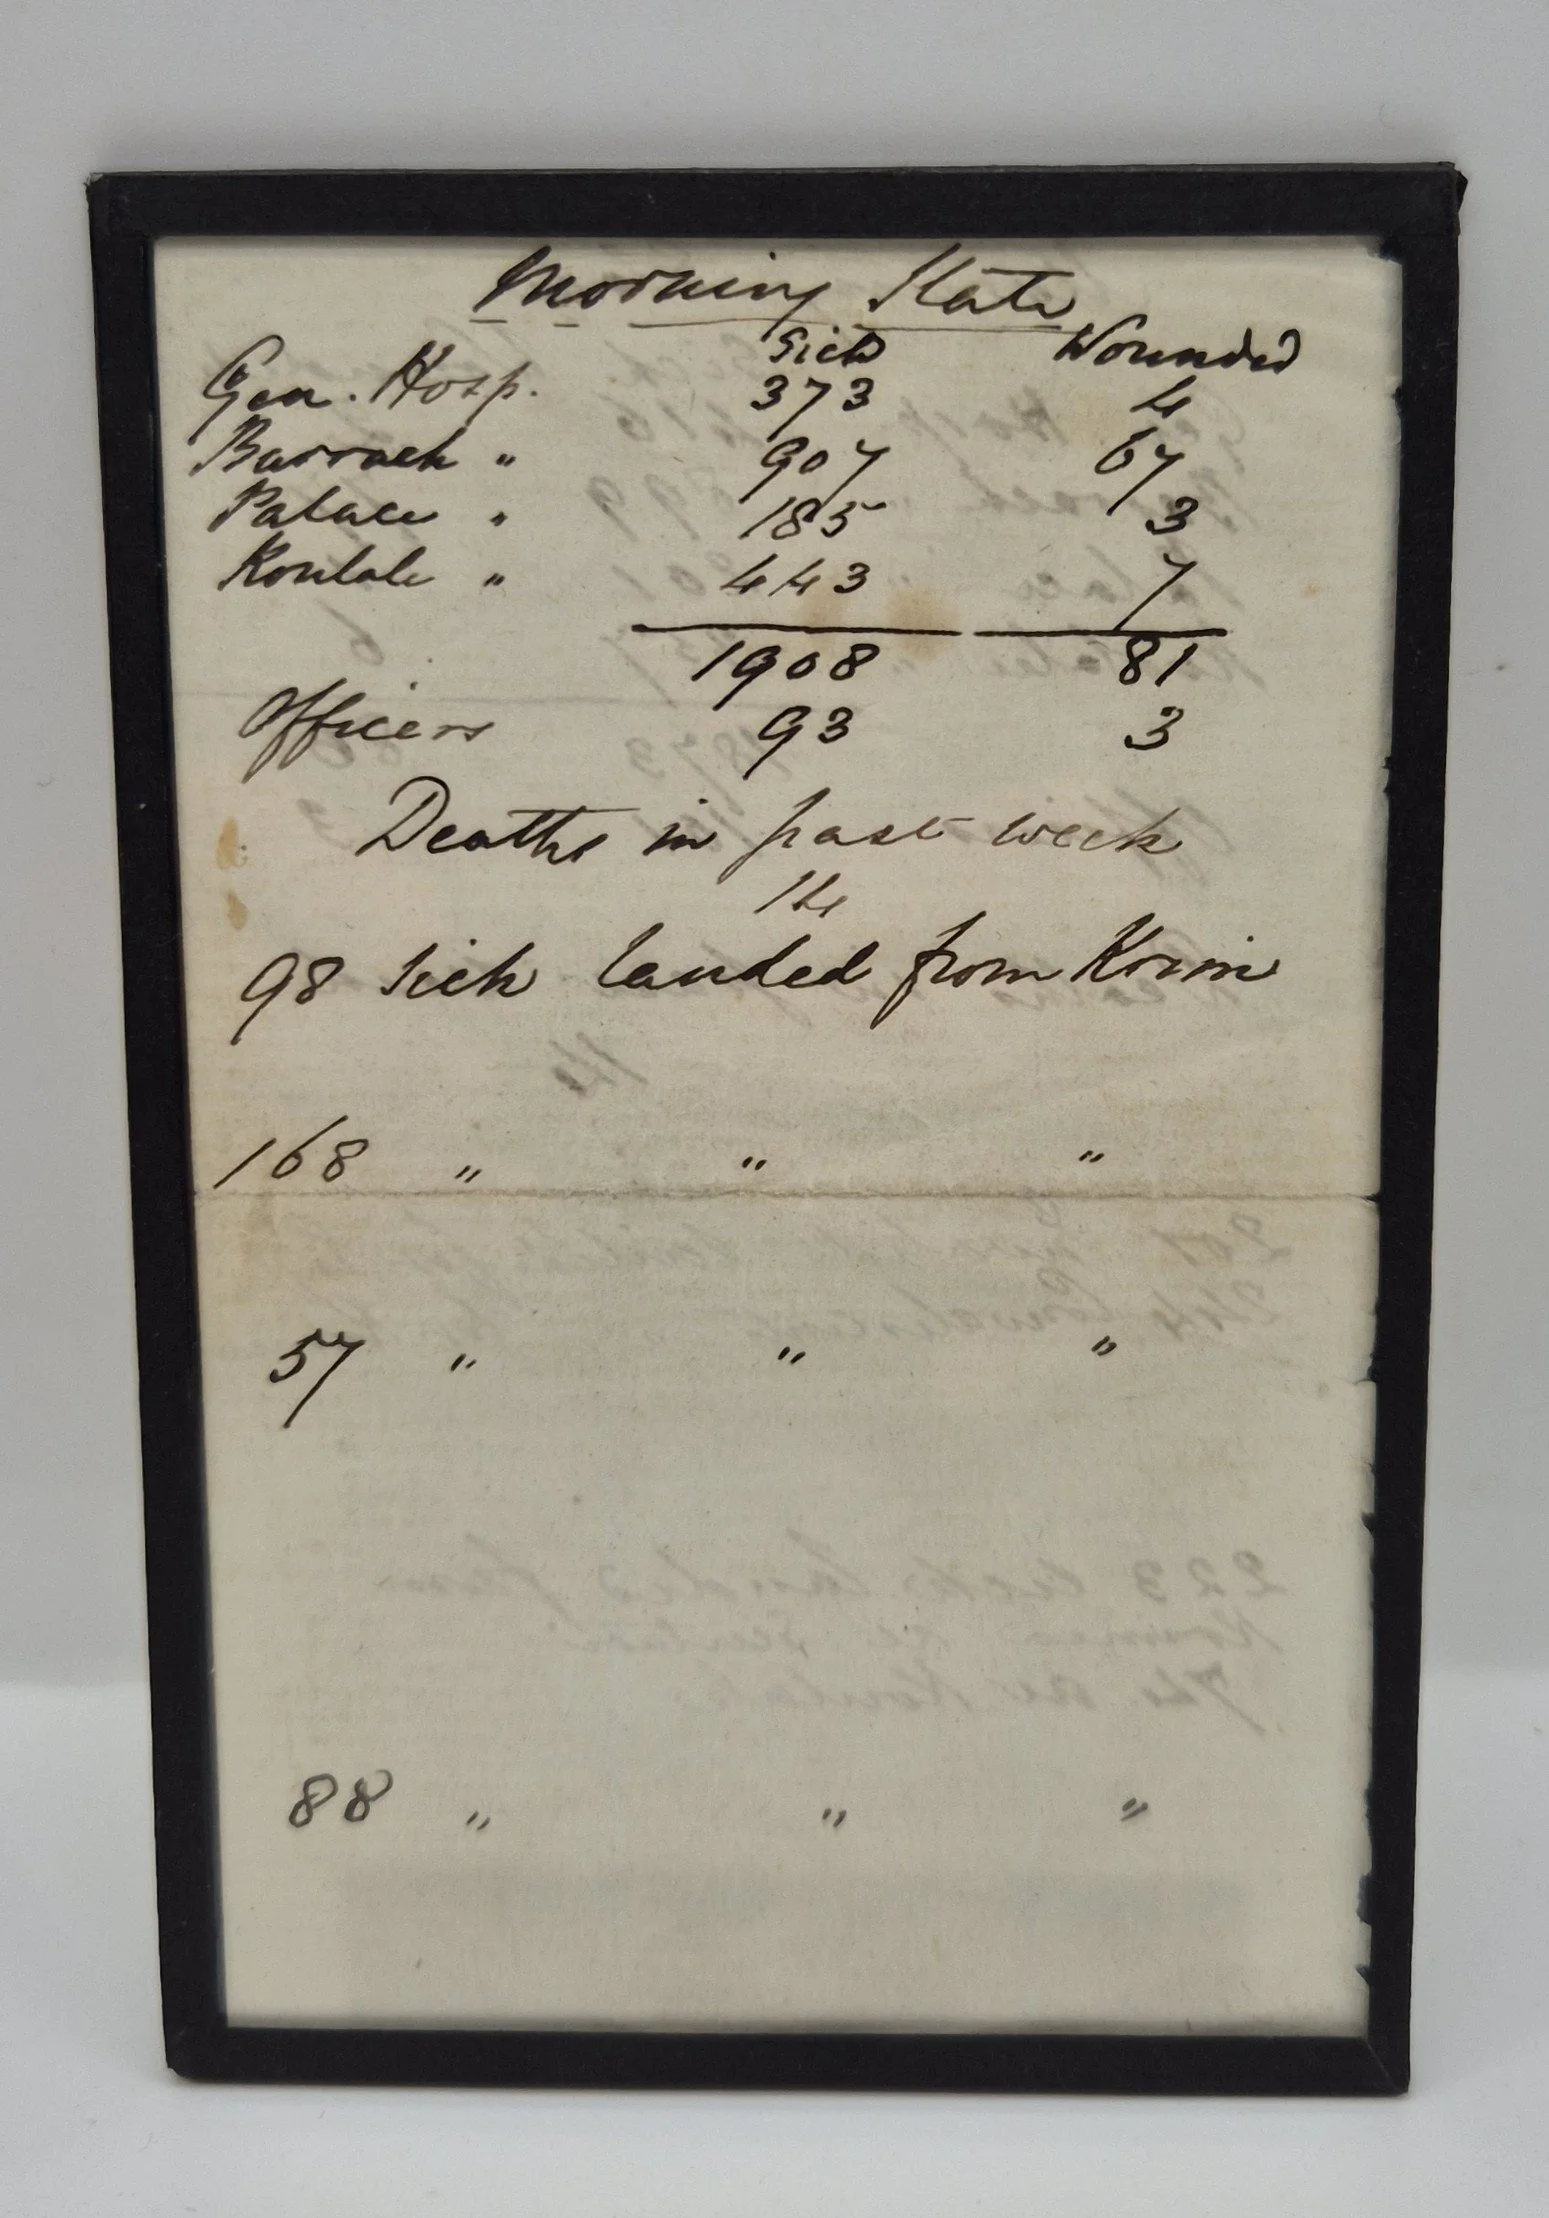 Morning State
Sick Wounded
Gen. Hosp. 373 4
Barrack " 907 67
Palace " 185 3
Koulale " 443 7
1908 81
Officers 93 3
Deaths in past week
14
98 sick landed from Krim
168 " " "
57 " " "
88 " " "